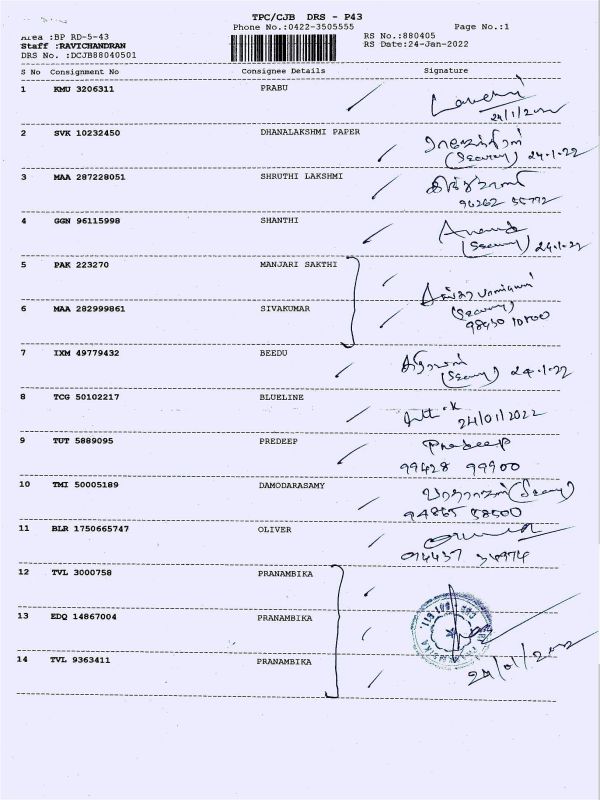 TPC/CJB DRS - P43
Phone No.:0422-3505555 Page No.:1
Area :BP RD-5-43 RS No.:880405
Staff :RAVICHANDRAN RS Date:24-Jan-2022
DRS No. :DCJB88040501
S No Consignment No Consignee Details Signature
1 KMU 3206311 PRABU
24/1/2022
2 SVK 10232450 DHANALAKSHMI PAPER
(Security) 24-1-22
3 MAA 287228051 SHRUTHI LAKSHMI
4 GGN 96115998 SHANTHI Anand
(Security) 24-1-22
5 PAK 223270 MANJARI SAKTHI
6 MAA 282999861 SIVAKUMAR (Security)
7 IXM 49779432 BEEDU
(Security) 24-1-22
8 TCG 50102217 BLUELINE
24/01/2022
9 TUT 5889095 PREDEEP Predeep
99428 99900
10 TMI 50005189 DAMODARASAMY (Security)
94865 58500
11 BLR 1750665747 OLIVER
12 TVL 3000758 PRANAMBIKA
13 EDQ 14867004 PRANAMBIKA
14 TVL 9363411 PRANAMBIKA 24/01/2022